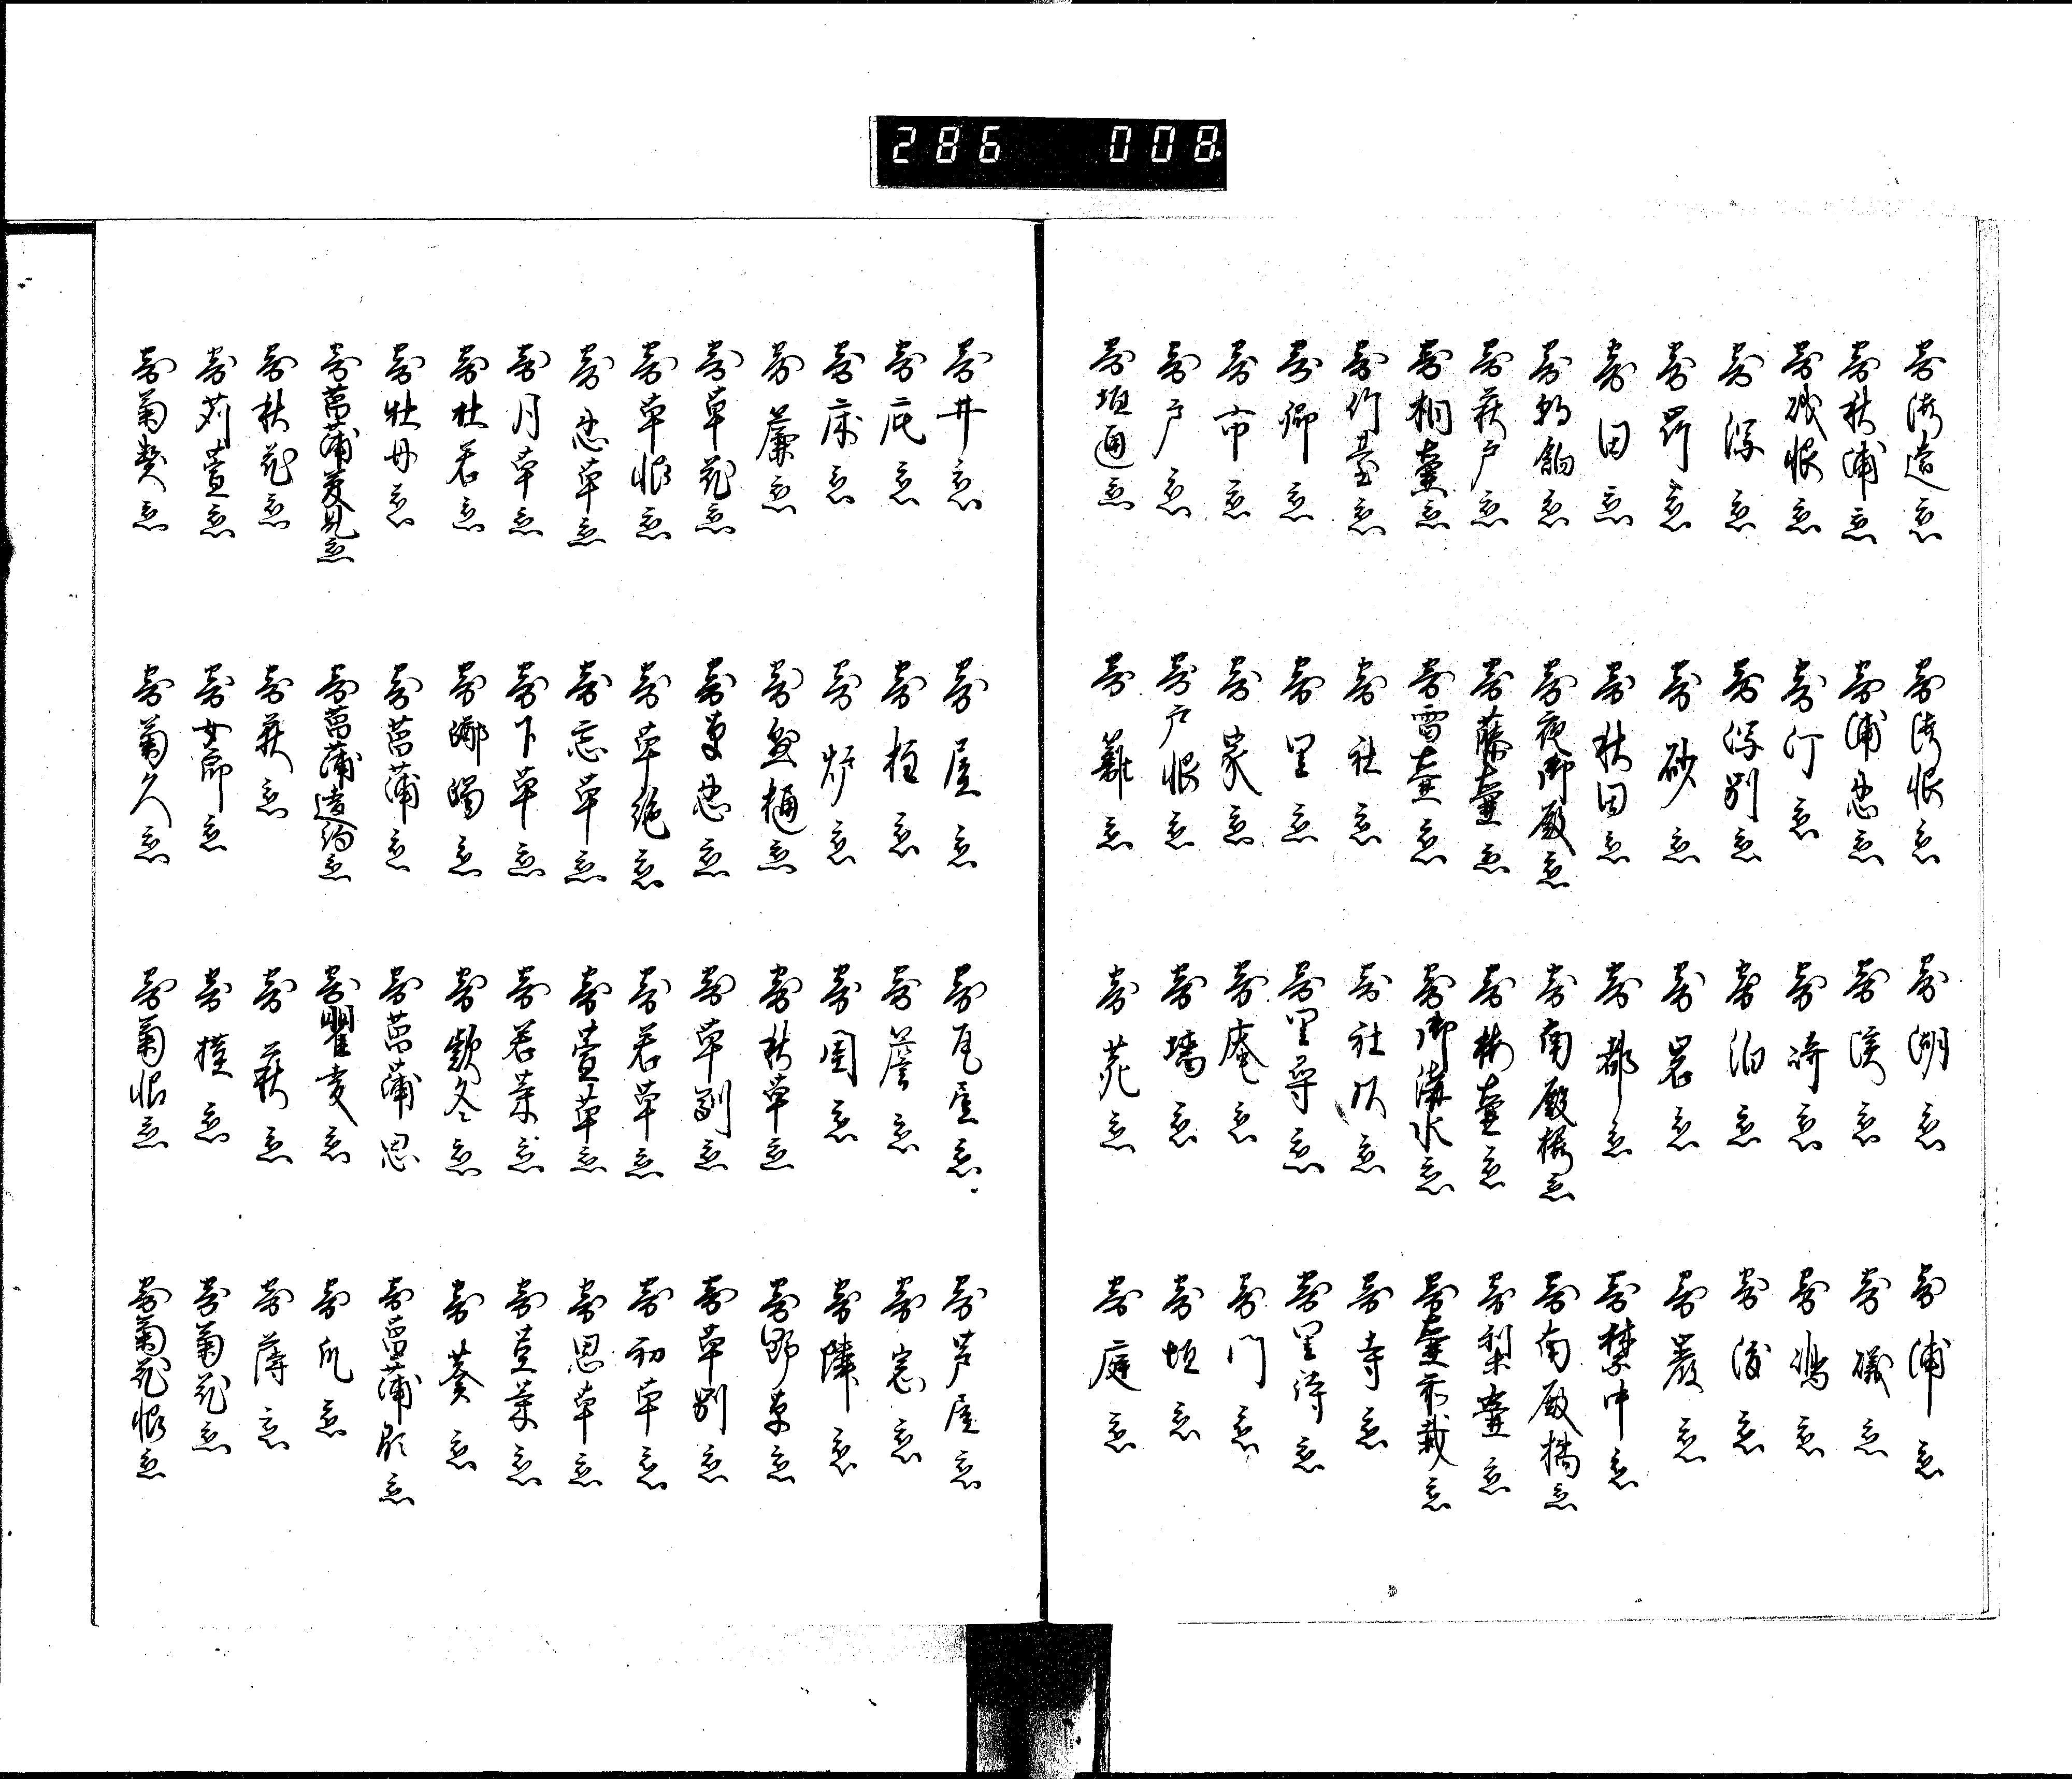 寄海遠恋 寄海恨恋 寄湖恋 寄浦恋
寄秋浦恋 寄浦忍恋 寄浜恋 寄磯恋
寄磯恨恋 寄汀恋 寄崎恋 寄嶋恋
寄潟恋 寄潟別恋 寄泊恋 寄渡恋
寄恋 寄砂恋 寄岩恋 寄巌恋
寄田恋 寄秋田恋 寄都恋 寄禁中恋
寄朝餉恋 寄夜御殿恋 寄南殿桜恋 寄南殿橘恋
寄萩戸恋 寄藤壷恋 寄梅壷恋 寄梨壷恋
寄桐壷恋 寄雷壷恋 寄御溝水恋 寄壷前栽恋
寄竹臺恋 寄社恋 寄社頭恋 寄寺恋
寄郷恋 寄里恋 寄里尋恋 寄里待恋
寄市恋 寄家恋 寄庵恋 寄門恋
寄戸恋 寄戸恨恋 寄墻恋 寄垣恋
寄垣通恋 寄籬恋 寄苑恋 寄庭恋
寄井恋 寄屋恋 寄瓦屋恋 寄芦屋恋
寄庇恋 寄柱恋 寄簷恋 寄窓恋
寄床恋 寄炉恋 寄閨恋 寄隣恋
寄簾恋 寄懸樋恋 寄秋草恋 寄野草恋
寄草花恋 寄草忍恋 寄草恋 寄草別恋
寄草恨恋 寄草絶恋 寄若草恋 寄初草恋
寄忍草恋 寄忘草恋 寄萱草恋 寄思草恋
寄月草恋 寄下草恋 寄若菜恋 寄菫菜恋
寄杜若恋 寄躑躅恋 寄款冬恋 寄葵恋
寄牡丹恋 寄菖蒲恋 寄菖蒲思 寄菖蒲顕恋
寄菖蒲見恋 寄菖蒲違約恋 寄瞿麦恋 寄瓜恋
寄秋花恋 寄萩恋 寄荻恋 寄薄恋
寄苅萱恋 寄女郎恋 寄槿恋 寄菊花恋
寄菊契恋 寄菊久恋 寄菊恨恋 寄菊花恨恋
286 008